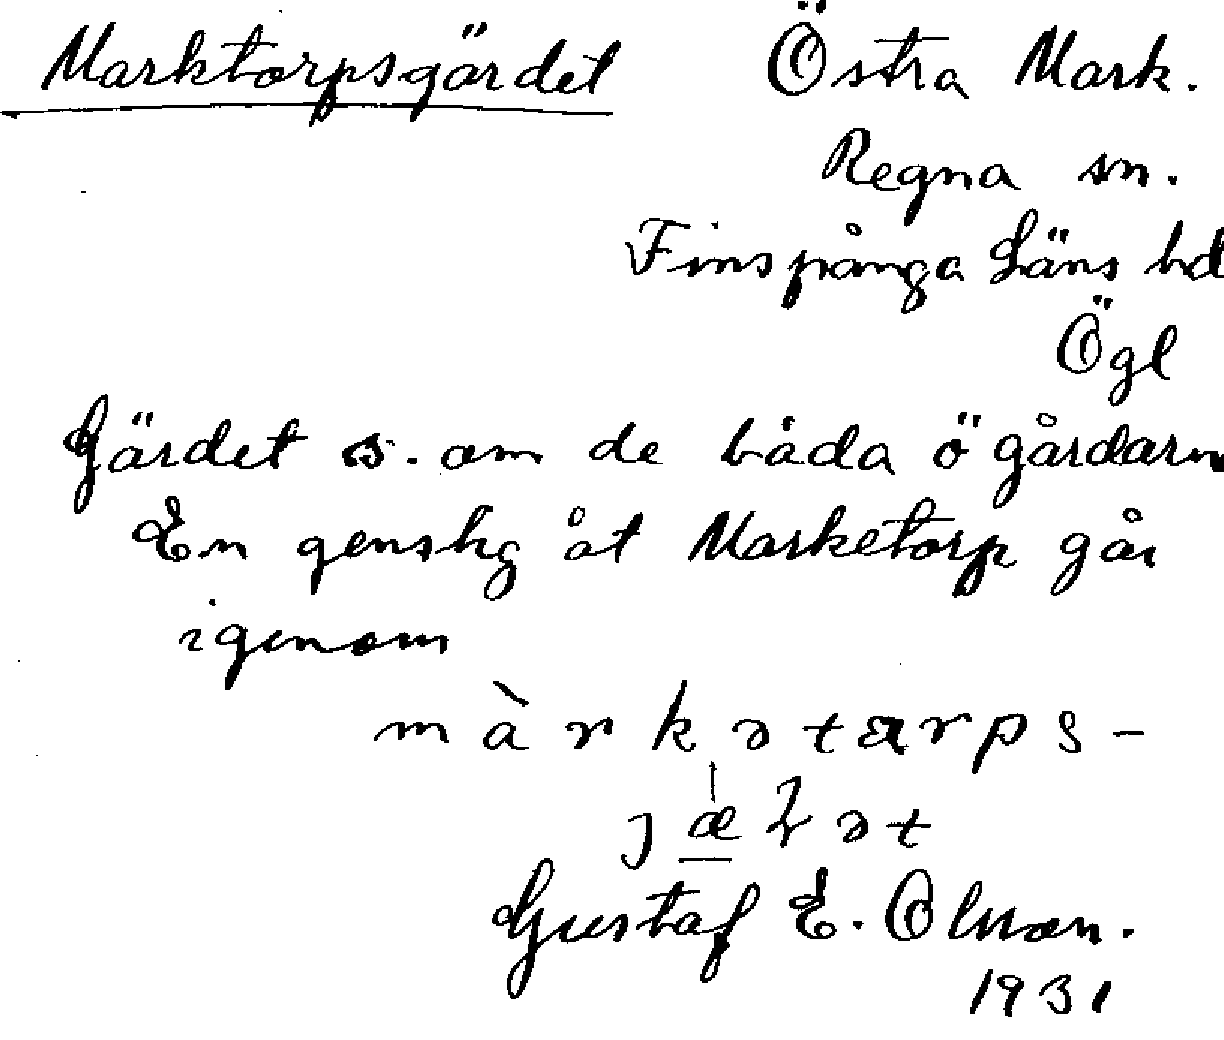 Marktorpsgärdet Östra Mark.
Regna sn.
Finspånga Läns hd
Ögl
Gärdet s. om de båda ö gårdarn
En genstig åt Marketorp går
igenom
màrkətarps-
Gustaf E. Olsson.
1931